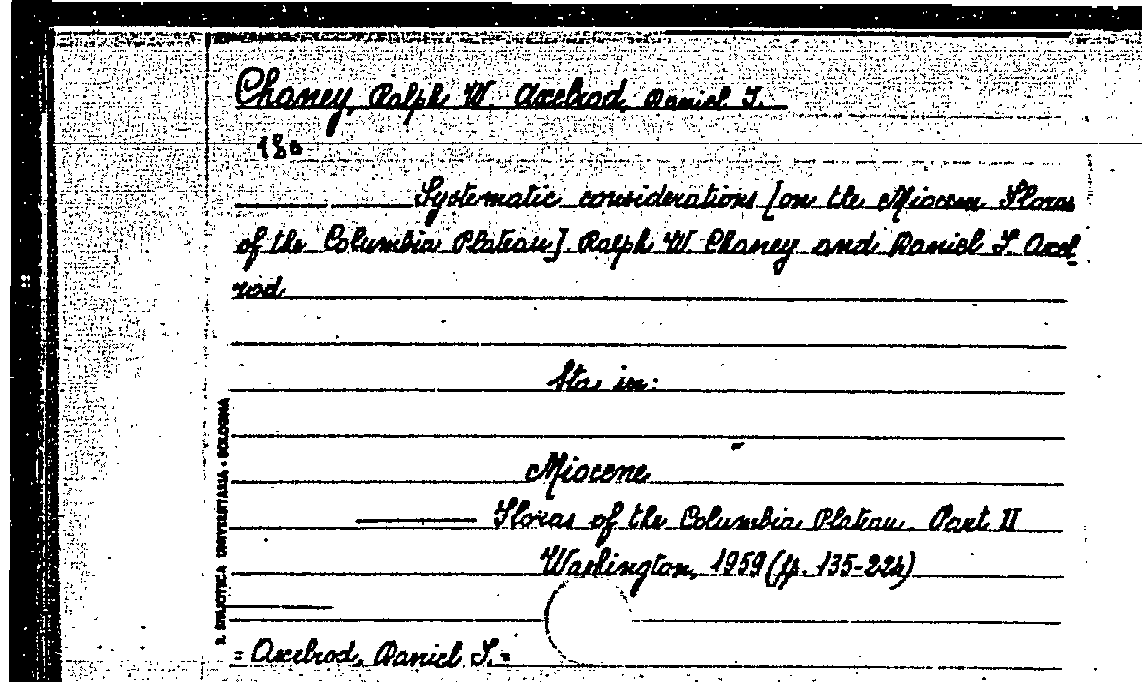 Chaney, Ralph W. Axelrod, Daniel I.
180
Systematic considerations [on the Miocene Floras
of the Columbia Plateau]. Ralph W. Chaney and Daniel I. Axel
rod
Sta in:
Miocene
Floras of the Columbia Plateau. Part II
Washington, 1959 (p. 135-224)
= Axelrod, Daniel I. =
R. BIBLIOTECA UNIVERSITARIA - BOLOGNA